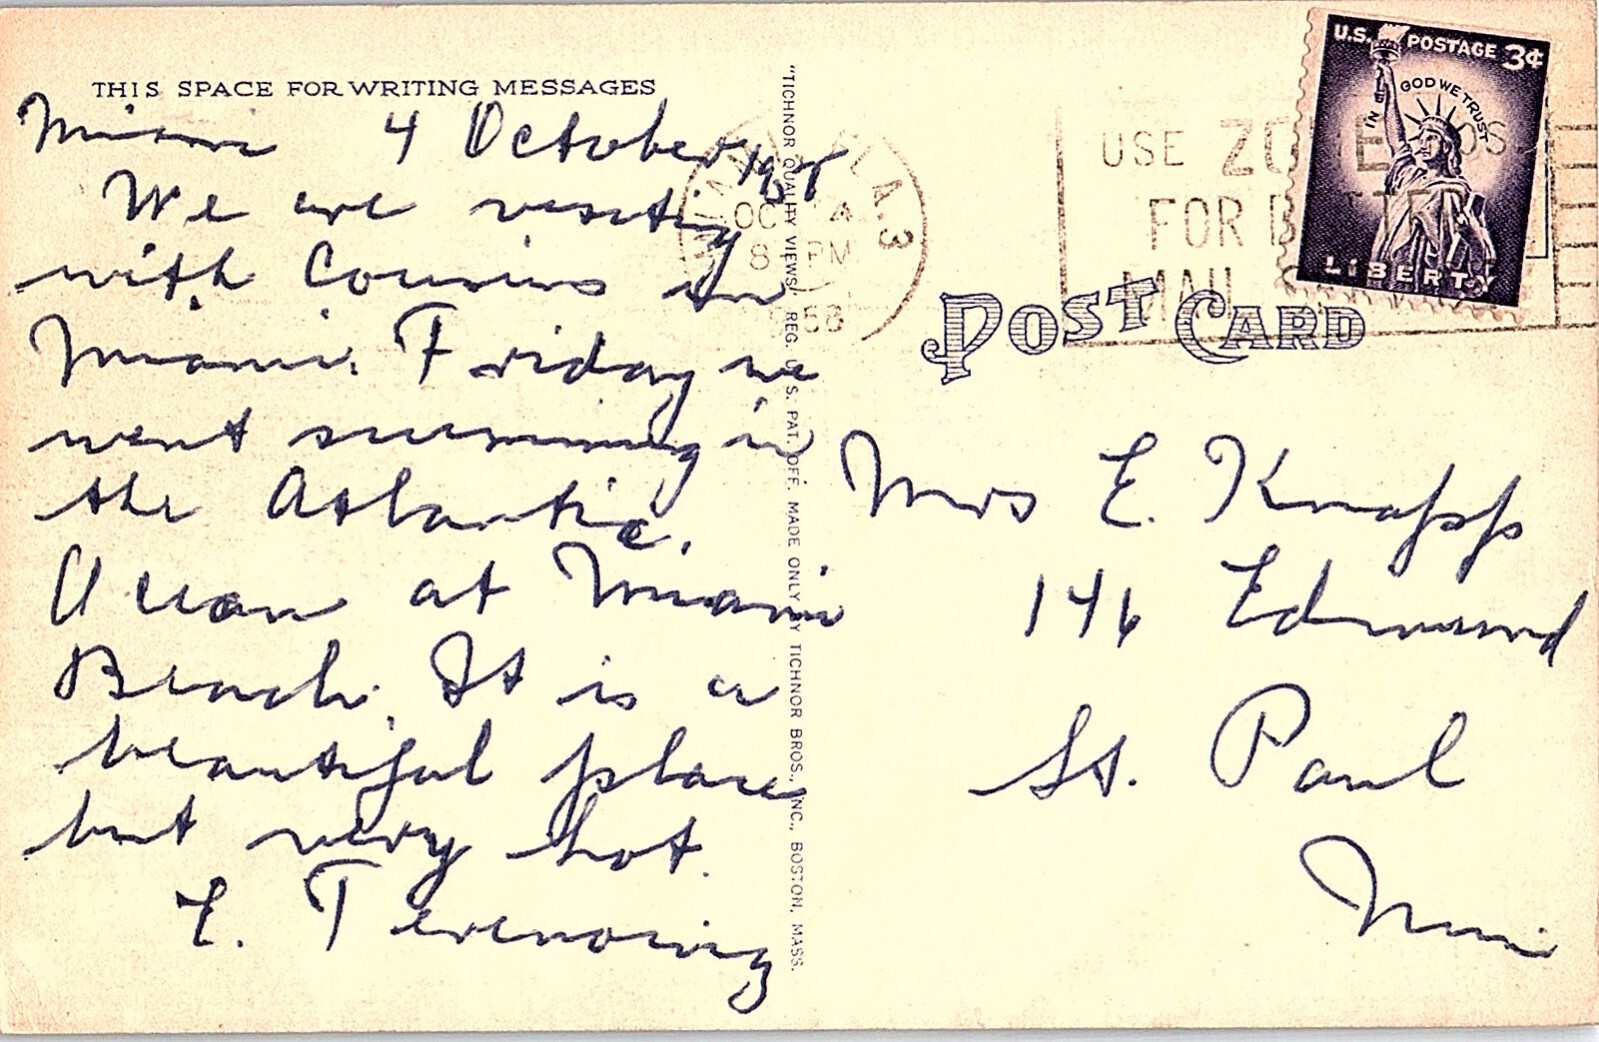 THIS SPACE FOR WRITING MESSAGES
Miami 4 October 1958
We are visiting
with Cousins in
Miami. Friday we
went swimming in
the Atlantic.
Ocean at Miami
Beach. It is a
beautiful place
but very hot.
E.
"TICHNOR QUALITY VIEWS," REG. U. S. PAT. OFF. MADE ONLY BY TICHNOR BROS., INC., BOSTON, MASS.
MIAMI FLA. 3
OCT
8 PM
58
USE ZONE NOS
FOR BETTER
MAIL
U.S. POSTAGE 3¢
IN GOD WE TRUST
LIBERTY
POST CARD
Mrs E. Knapp
146 Edmund
St. Paul
Minn